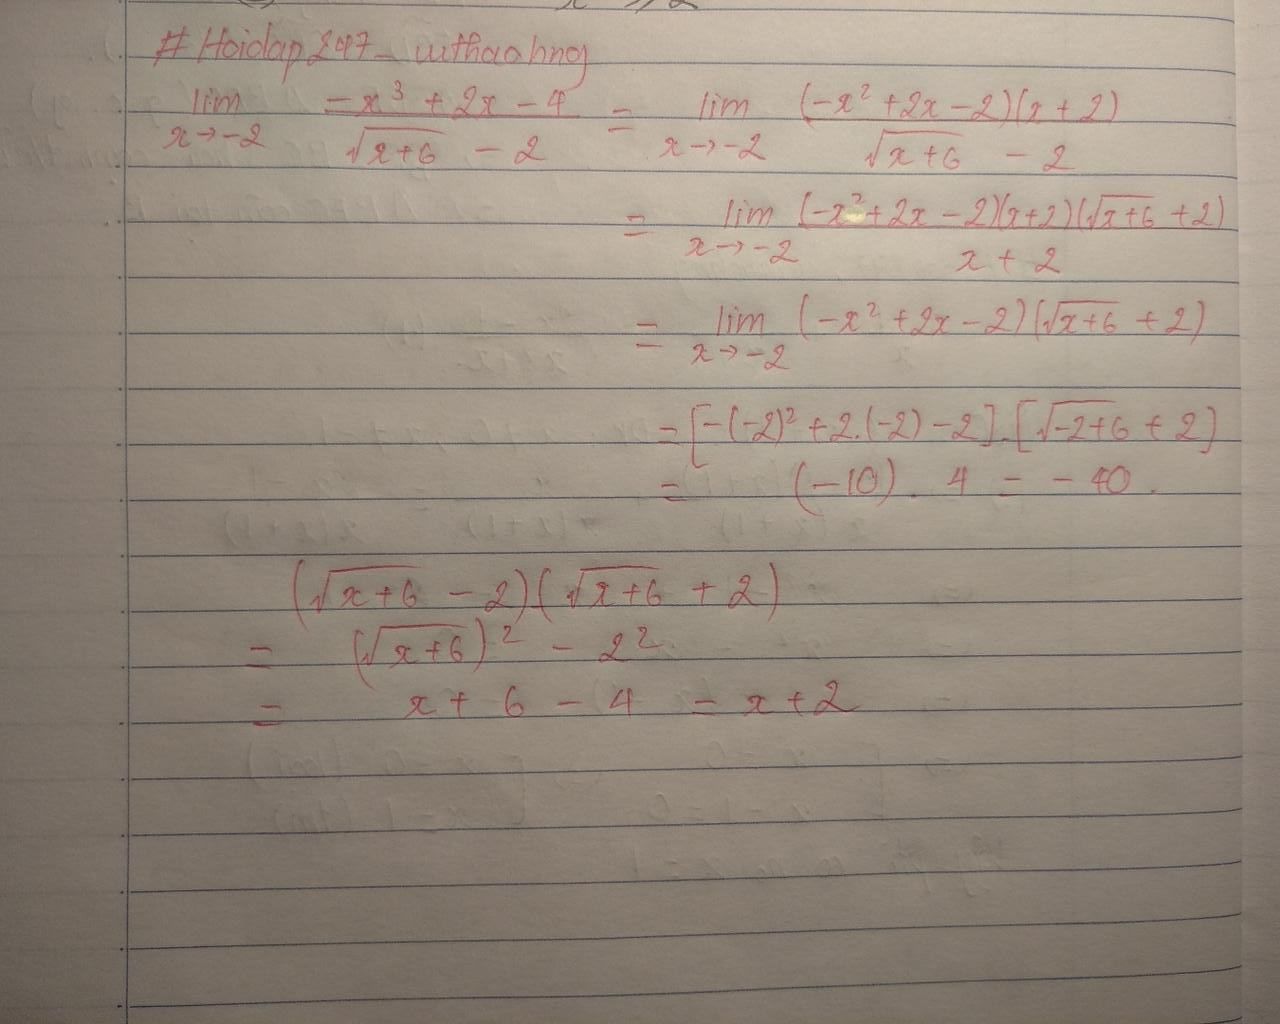 x → 2
# Hoidap247_uuthaohnoj
lim x→-2 (-x³ + 2x - 4)/(√(x+6) - 2) = lim x→-2 ((-x² + 2x - 2)(x + 2))/(√(x+6) - 2)
= lim x→-2 ((-x² + 2x - 2)(x+2)(√(x+6) + 2))/(x + 2)
= lim x→-2 (-x² + 2x - 2)(√(x+6) + 2)
= [-(-2)² + 2.(-2) - 2].[√(-2+6) + 2]
= (-10) . 4 = - 40.
(√(x+6) - 2)(√(x+6) + 2)
= (√(x+6))² - 2²
= x + 6 - 4 = x + 2